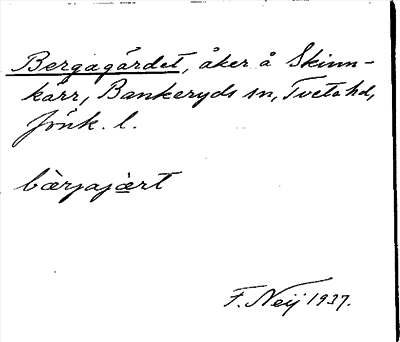 Bergagärdet, åker å Skinn-
karr, Bankeryds sn, Tveta hd,
Jönk. l.
bærjajært
F. Neij 1937.